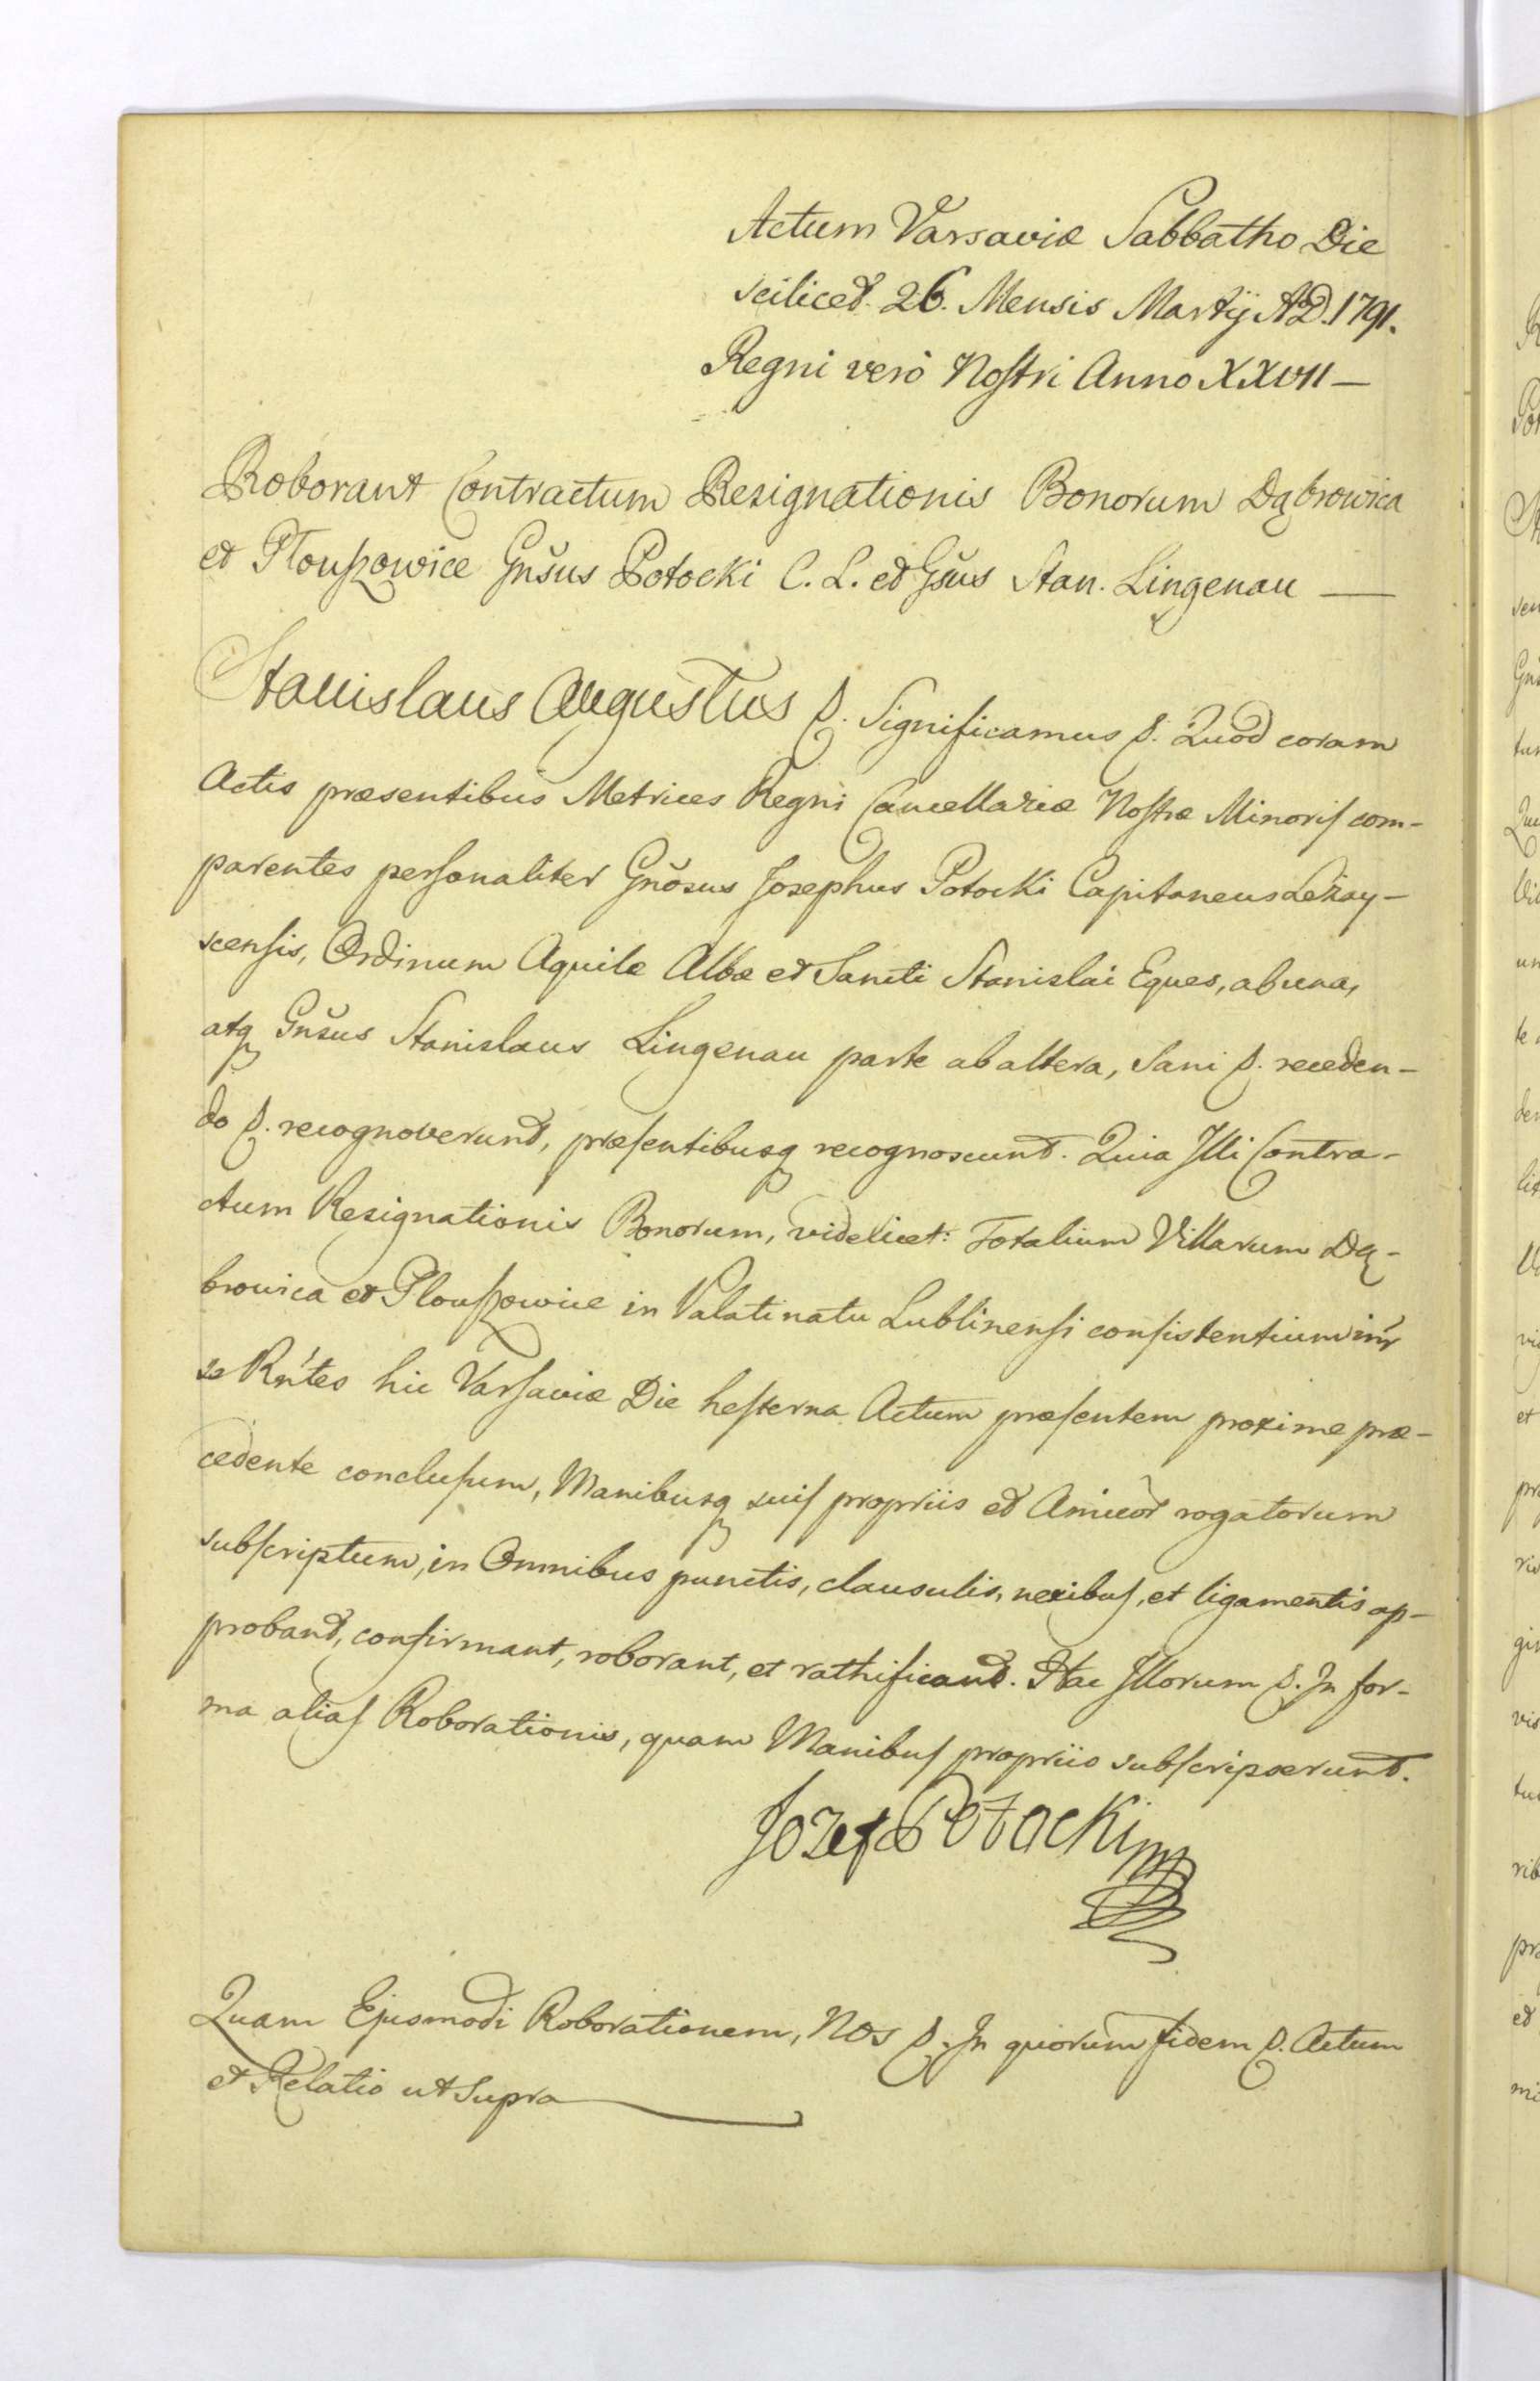 Actum Varsaviæ Sabbatho Die
scilicet 26. Mensis Martij AD. 1791.
Regni verò Noſtri Anno XXVII —
Roborant Contractum Resignationis Bonorum Dąbrowica
et Płouſzowice Gnsus Potocki C. L. et Gsus Stan. Lingenau —
Stanislaus Augustus S. Significamus S. Quod coram
Actis præsentibus Metrices Regni Cancellariæ Noſtræ Minoriſ com-
parentes perſonaliter Gnosus Josephus Potocki Capitaneus Leżay-
scenſis, Ordinum Aquilæ Albæ et Sancti Stanislai Eques, ab una,
atq Gnsus Stanislaus Lingenau parte ab altera, Sani S. receden-
do S. recognoverunt, præſentibusq recognoscunt. Quia Illi Contra-
ctum Resignationis Bonorum, videlicet: Totalium Villarum Dą-
browica et Plouſzowice in Palatinatu Lublinenſi conſistentium inr
se Rntes hic Varſaviæ Die heſterna Actum præſentem proxime præ-
cedente concluſum, Manibusq suiſ propriis et Amicor rogatorum
subſcriptum, in Omnibus punctis, clausulis, nexibuſ, et ligamentis ap-
probant, confirmant, roborant, et rathificant. Hac Illorum S. In for-
ma aliaſ Roborationis, quam Manibuſ propriis subſcripserunt.
Jozef Potocki mp
Quam Ejusmodi Roborationem, Nos S. In quorum fidem S. Actum
et Relatio ut Supra